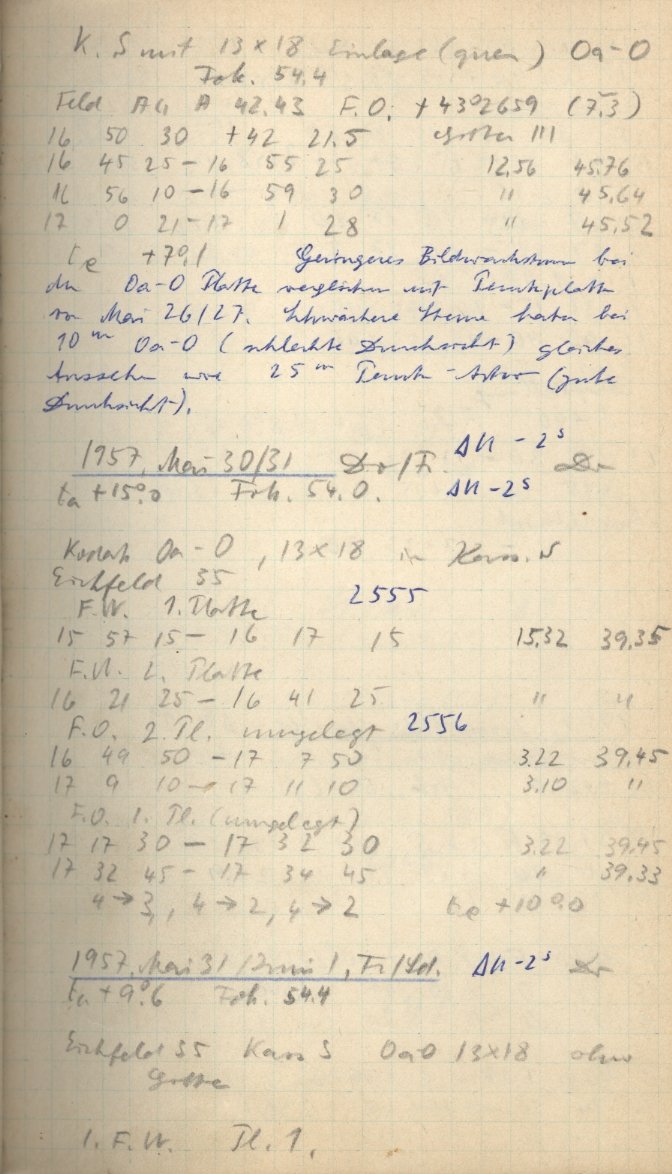 K. S mit 13 x 18 Einlage (quer) Oa-O
Fok. 54.4
Feld A 42.43 F.O. +43°2659 (7.3)
16 50 30 +42 21.5 Gitter III
16 45 25 - 16 55 25 12.56 45.76
16 56 10 - 16 59 30 " 45.64
17 0 21 - 17 1 28 " 45.52
te +7°.1 Geringeres Bildwachstum bei
der Oa-O Platte verglichen mit Platte
von Mai 26/27. Schwächere Sterne haben bei
10m Oa-O (schlechte Durchsicht) gleiches
Aussehen wie 25m (gute
Durchsicht).
1957, Mai 30/31 Do/Fr. ΔU - 2s Dr
ta +15°.0 Fok. 54.0. ΔU - 2s
Kodak Oa-O, 13x18 in Kass. S
Eichfeld 55
F.W. 1. Platte 2555
15 57 15 - 16 17 15 15.32 39.35
F.W. 2. Platte
16 21 25 - 16 41 25 " "
F.O. 2. Pl. umgelegt 2556
16 49 50 - 17 7 50 3.22 39.45
17 9 10 - 17 11 10 3.10 "
F.O. 1. Pl. (umgelegt)
17 17 30 - 17 32 30 3.22 39.45
17 32 45 - 17 34 45 " 39.33
4 → 3, 4 → 2, 4 → 2 te +10°.0
1957, Mai 31 / Juni 1, Fr/Sd. ΔU - 2s Dr
ta +9°.6 Fok. 54.4
Eichfeld 55 Kass S Oa-O 13x18 ohne
Gitter
1. F.W. Pl. 1.